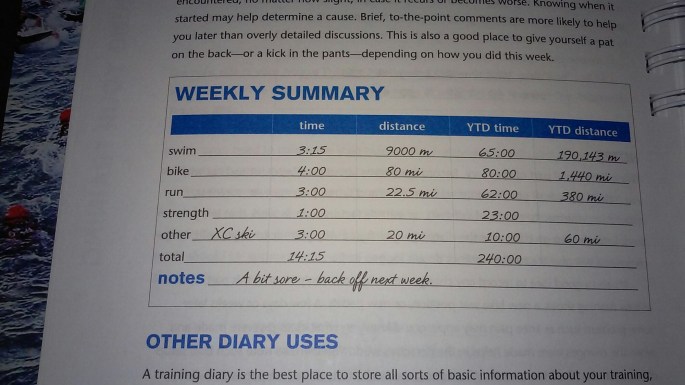 encountered, no matter how slight, in case it recurs or becomes worse. Knowing when it
started may help determine a cause. Brief, to-the-point comments are more likely to help
you later than overly detailed discussions. This is also a good place to give yourself a pat
on the back—or a kick in the pants—depending on how you did this week.
WEEKLY SUMMARY
time distance YTD time YTD distance
swim 3:15 9000 m 65:00 190,143 m
bike 4:00 80 mi 80:00 1,440 mi
run 3:00 22.5 mi 62:00 380 mi
strength 1:00 23:00
other XC ski 3:00 20 mi 10:00 60 mi
total 14:15 240:00
notes A bit sore – back off next week.
OTHER DIARY USES
A training diary is the best place to store all sorts of basic information about your training,